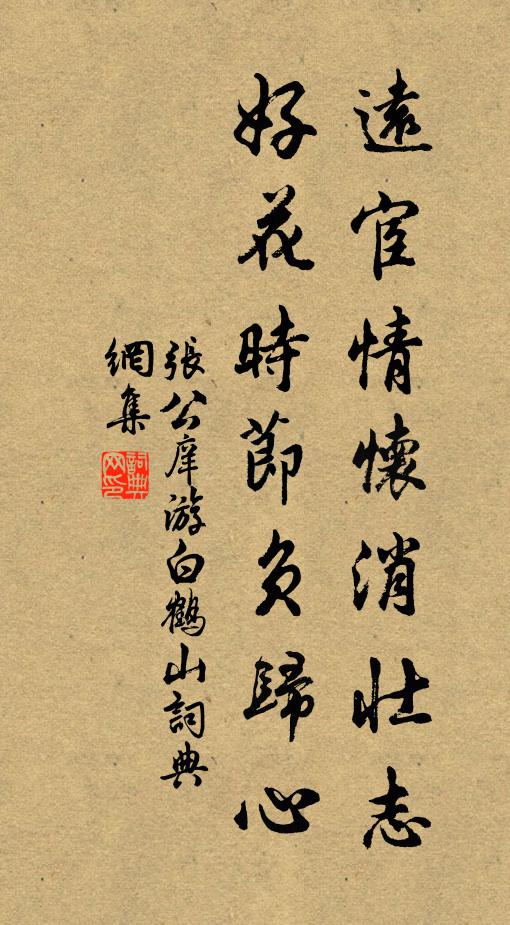 遠宦情懷消壯志
好花時節負歸心
張公庠游白鶴山詞典
網集
詞典網印